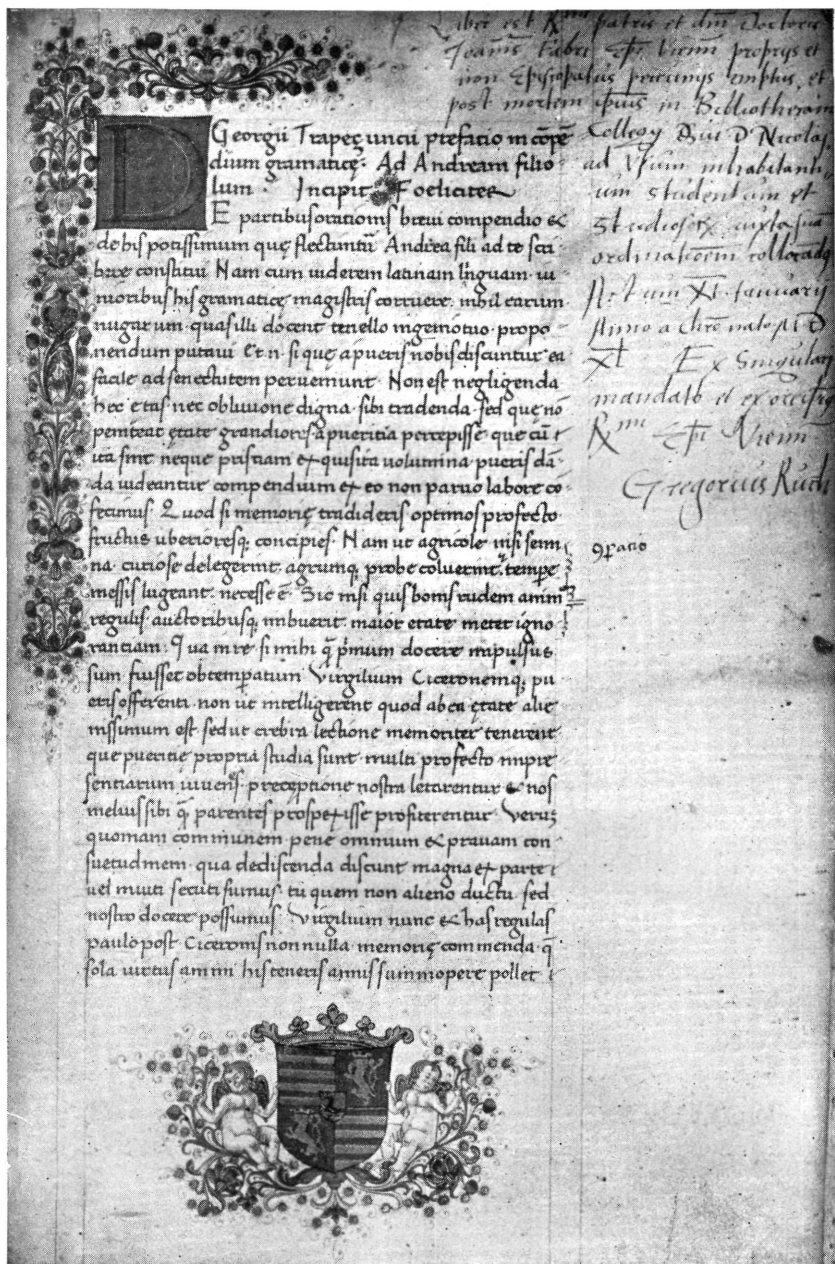 D
Georgii Trapęzuncii prefatio in cōpē
dium gramaticę · Ad Andream filio
lum · Incipit Foeliciter
E partibus orationis breui compendio &
de his potissimum quę flectuntur Andrea fili ad te scri
bere constitui Nam cum uiderem latinam linguam iu
nioribus his gramaticę magistris corruere nihil earum
nugarum quas illi docent tenello ingenio tuo propo
nendum putaui Et n si quę a pueris nobis discuntur ea
facile ad senectutem perueniunt · Non est negligenda
hec etas nec obliuione digna sibi tradenda sed quę nō
peniteat ętate grandiores a pueritia percepisse que cū
ita sint neque prisciani exquisita uolumina pueris dā
da uideantur compendium ex eo non paruo labore co
fecimus · Quod si memorię tradideris optimos profecto
fructus uberioresq concipies · Nam ut agricole nisi semi
na curiose delegerint agrumq probe coluerint tempe
messis lugeant necesse ē Sic nisi quis bonis rudem anim
regulis auctoribusq imbuerit maior etate metet igno
rantiam · Qua in re si mihi q̄ primum docere impulsus
sum fuisset obtemperatum Virgilium Ciceronemq pu
eris offerenti non ut intelligerent quod ab ea ętate alie
nissimum est sed ut crebra lectione memoriter tenerent
que pueritie propria studia sunt multi profecto inpre
sentiarum iuuenes preceptione nostra letarentur & nos
melius sibi q̄ parentes prospexisse profiterentur Verum
quoniam communem pene omnium & prauam con
suetudinem qua dediscenda discunt magna ex parte
uel inuiti secuti sumus tu quem non alieno ductu sed
nostro docere possumus Virgilium nunc & has regulas
paulo post Ciceronis non nulla memorię commenda q̄
sola uirtus animi his teneris annis summopere pollet
Liber est Rmi patris et dni Doctoris
Joannis Fabri Epi Vienn proprijs et
non Episcopatus pecunijs emptus, et
post mortem ipsius in Bibliothecam
Collegij Diui D Nicolaj
ad Vsum inhabitanti
um studentum et
Studiosorum iuxta suam
ordinationem collocandus
Actum XI Januarij
Anno a Chro nato M D
XL Ex Singulari
mandato et ex
Rmi Epi Vienn
Gregorius
9patio